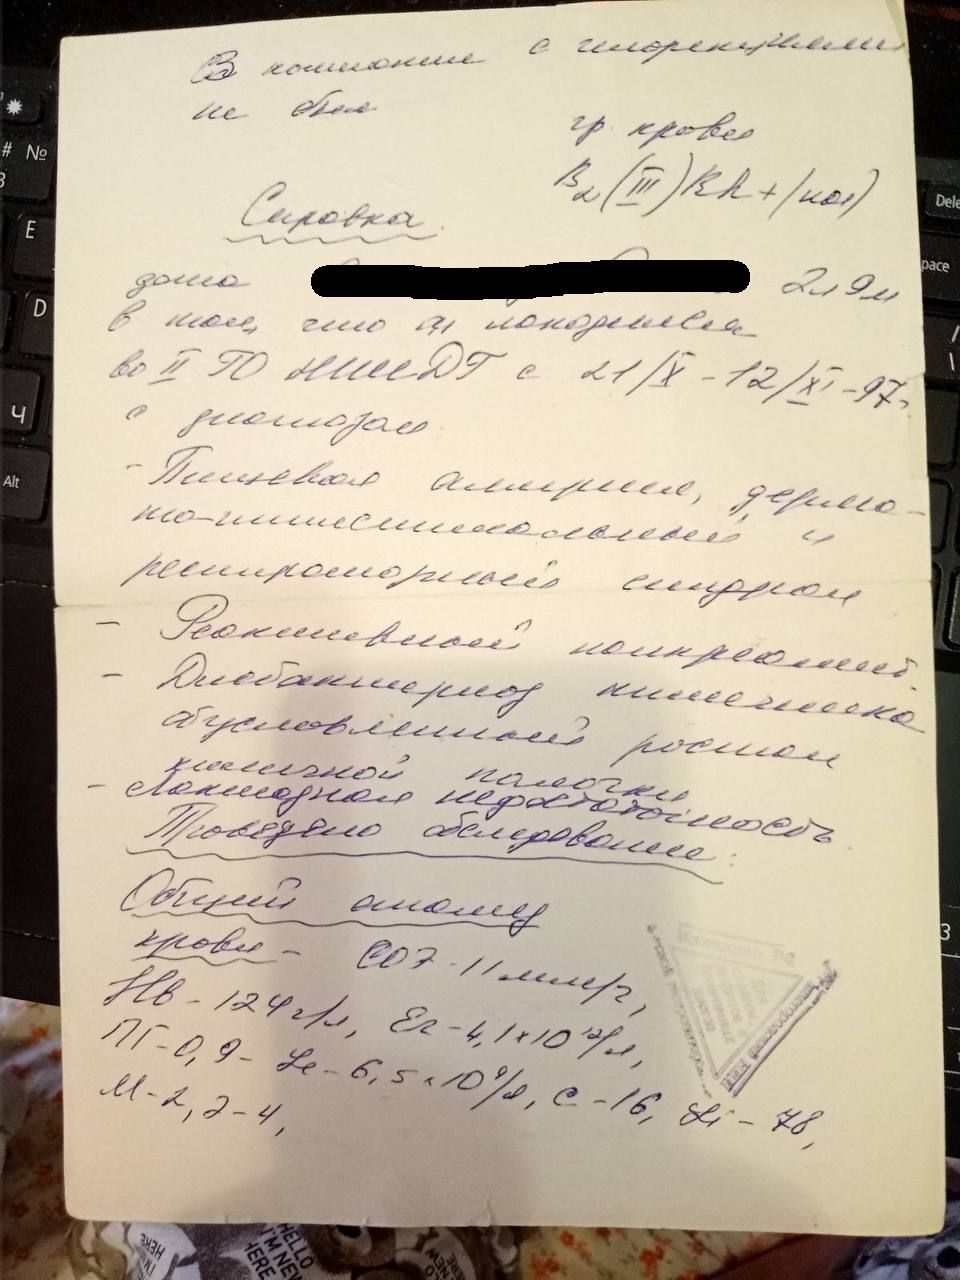 В контакте с инфекциями
не был
гр. крови
В₂(III) Rh+(пол)
Справка
дана 2г 9м
в том, что он находился
во II ГО НИИДГ с 21/X-12/XI-97г.
с диагнозом
- Пищевая аллергия, дерма-
то-интестинальный и
респираторный синдром
- Реактивный панкреатит.
- Дисбактериоз кишечника
обусловленный ростом
кишечной палочки
- Лактозная недостаточность
Проведено обследование:
Общий анализ
крови - СОЭ-11мм/г,
Нв-124г/л, Er-4,1×10¹²/л,
ПГ-0,9- Le-6,5×10⁹/л, С-16, Li-78,
М-2, Э-4,
# №
3
E
D
Ч
Alt
Dele
pace
HERE
HELLO
I'M NEW
HERE